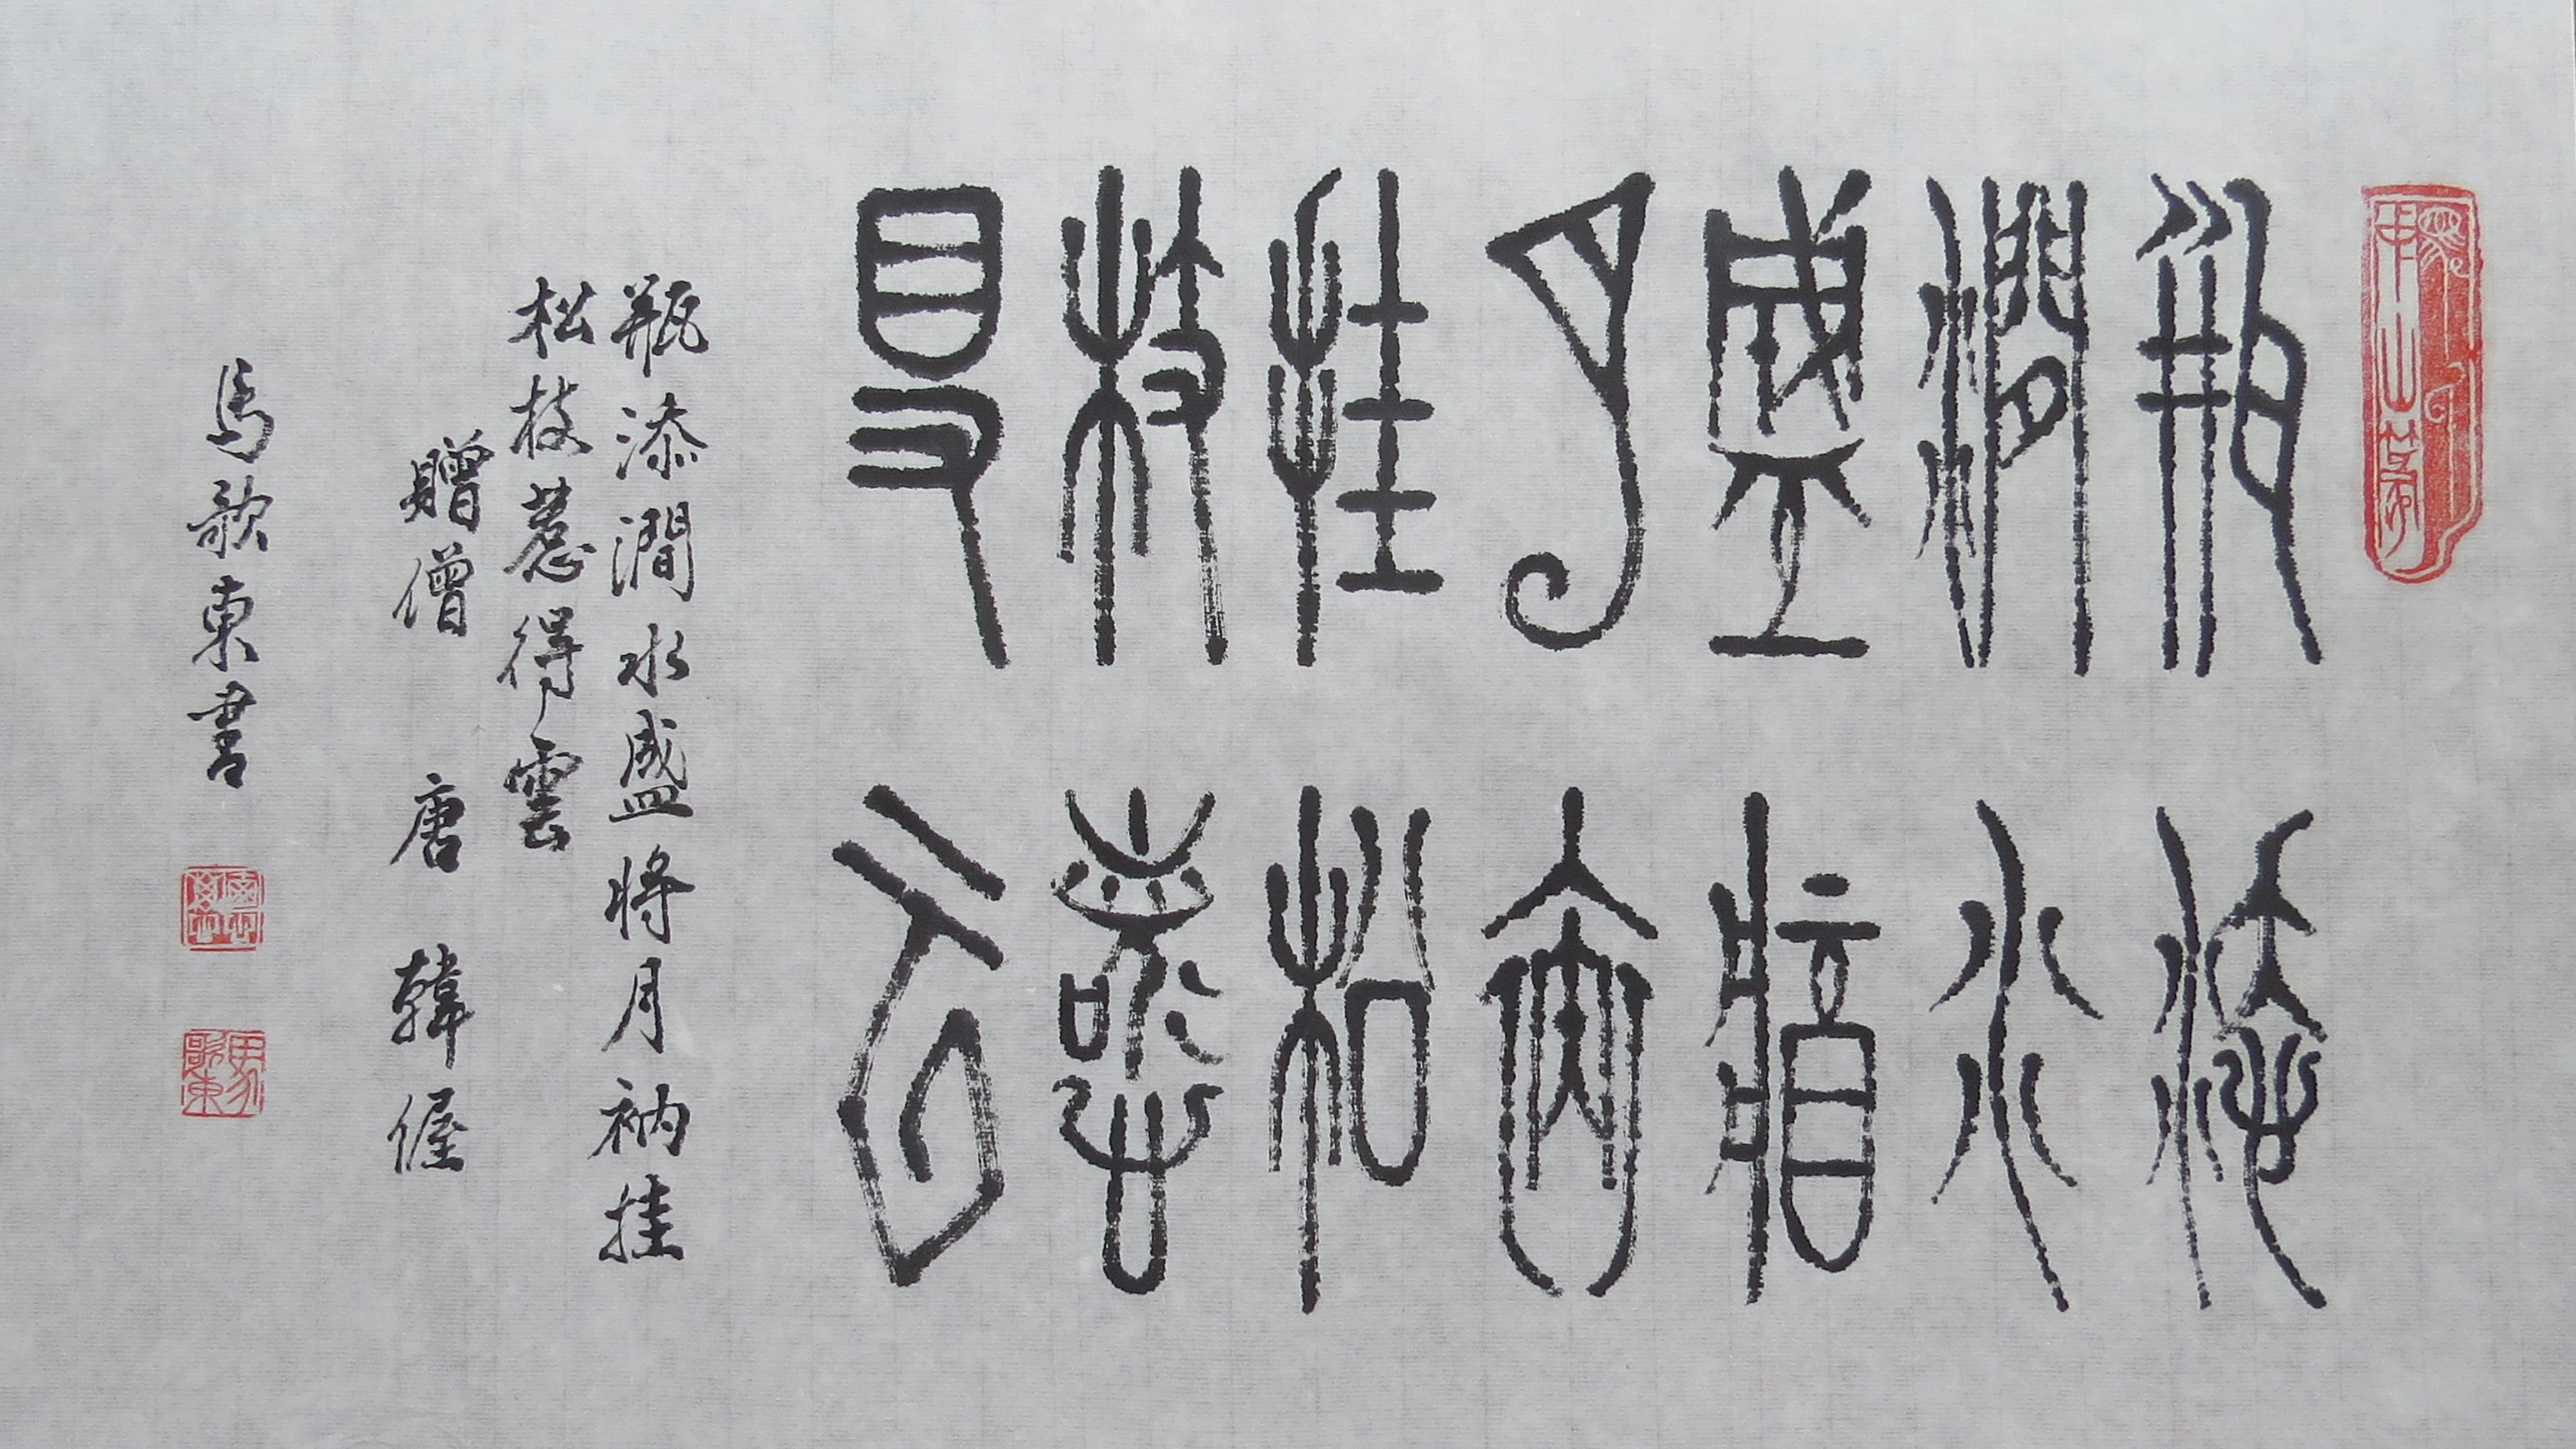 瓶添
澗水
盛將
月衲
挂松
枝惹
得雲
瓶添澗水盛將月衲挂
松枝惹得雲
贈僧 唐 韓偓
馬歌東書
馬歌東